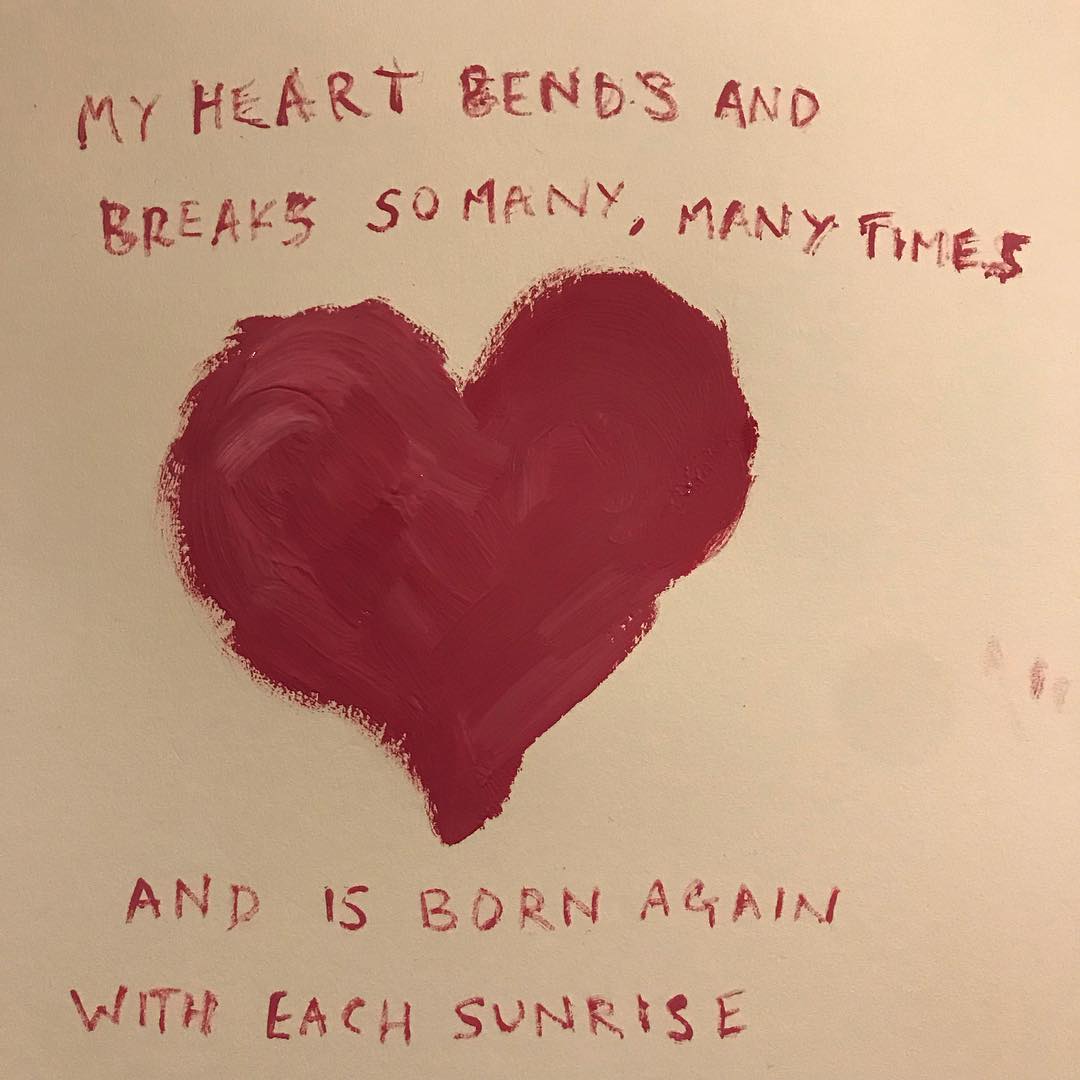 MY HEART BENDS AND
BREAKS SO MANY, MANY TIMES
AND IS BORN AGAIN
WITH EACH SUNRISE